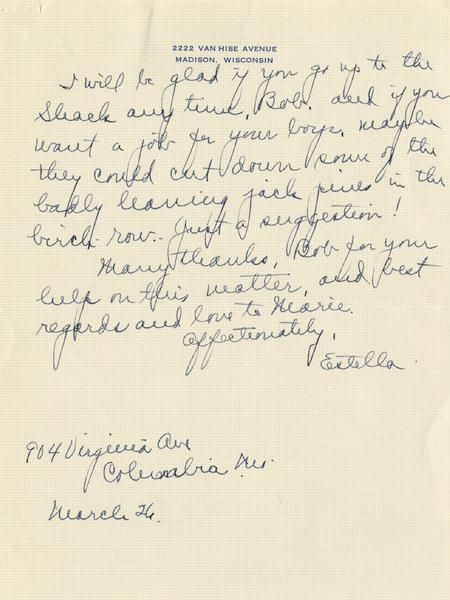 2222 VAN HISE AVENUE
MADISON, WISCONSIN
I will be glad if you go up to the
Shack any time, Bob. and if you
want a job for your boys, maybe
they could cut down some of the
badly leaning jack pines in the
birch row. Just a suggestion!
Many thanks, Bob for your
help on this matter, and best
regards and love to Marie.
Affectionately,
Estella
904 Virginia Ave
Columbia Mo.
March 26.